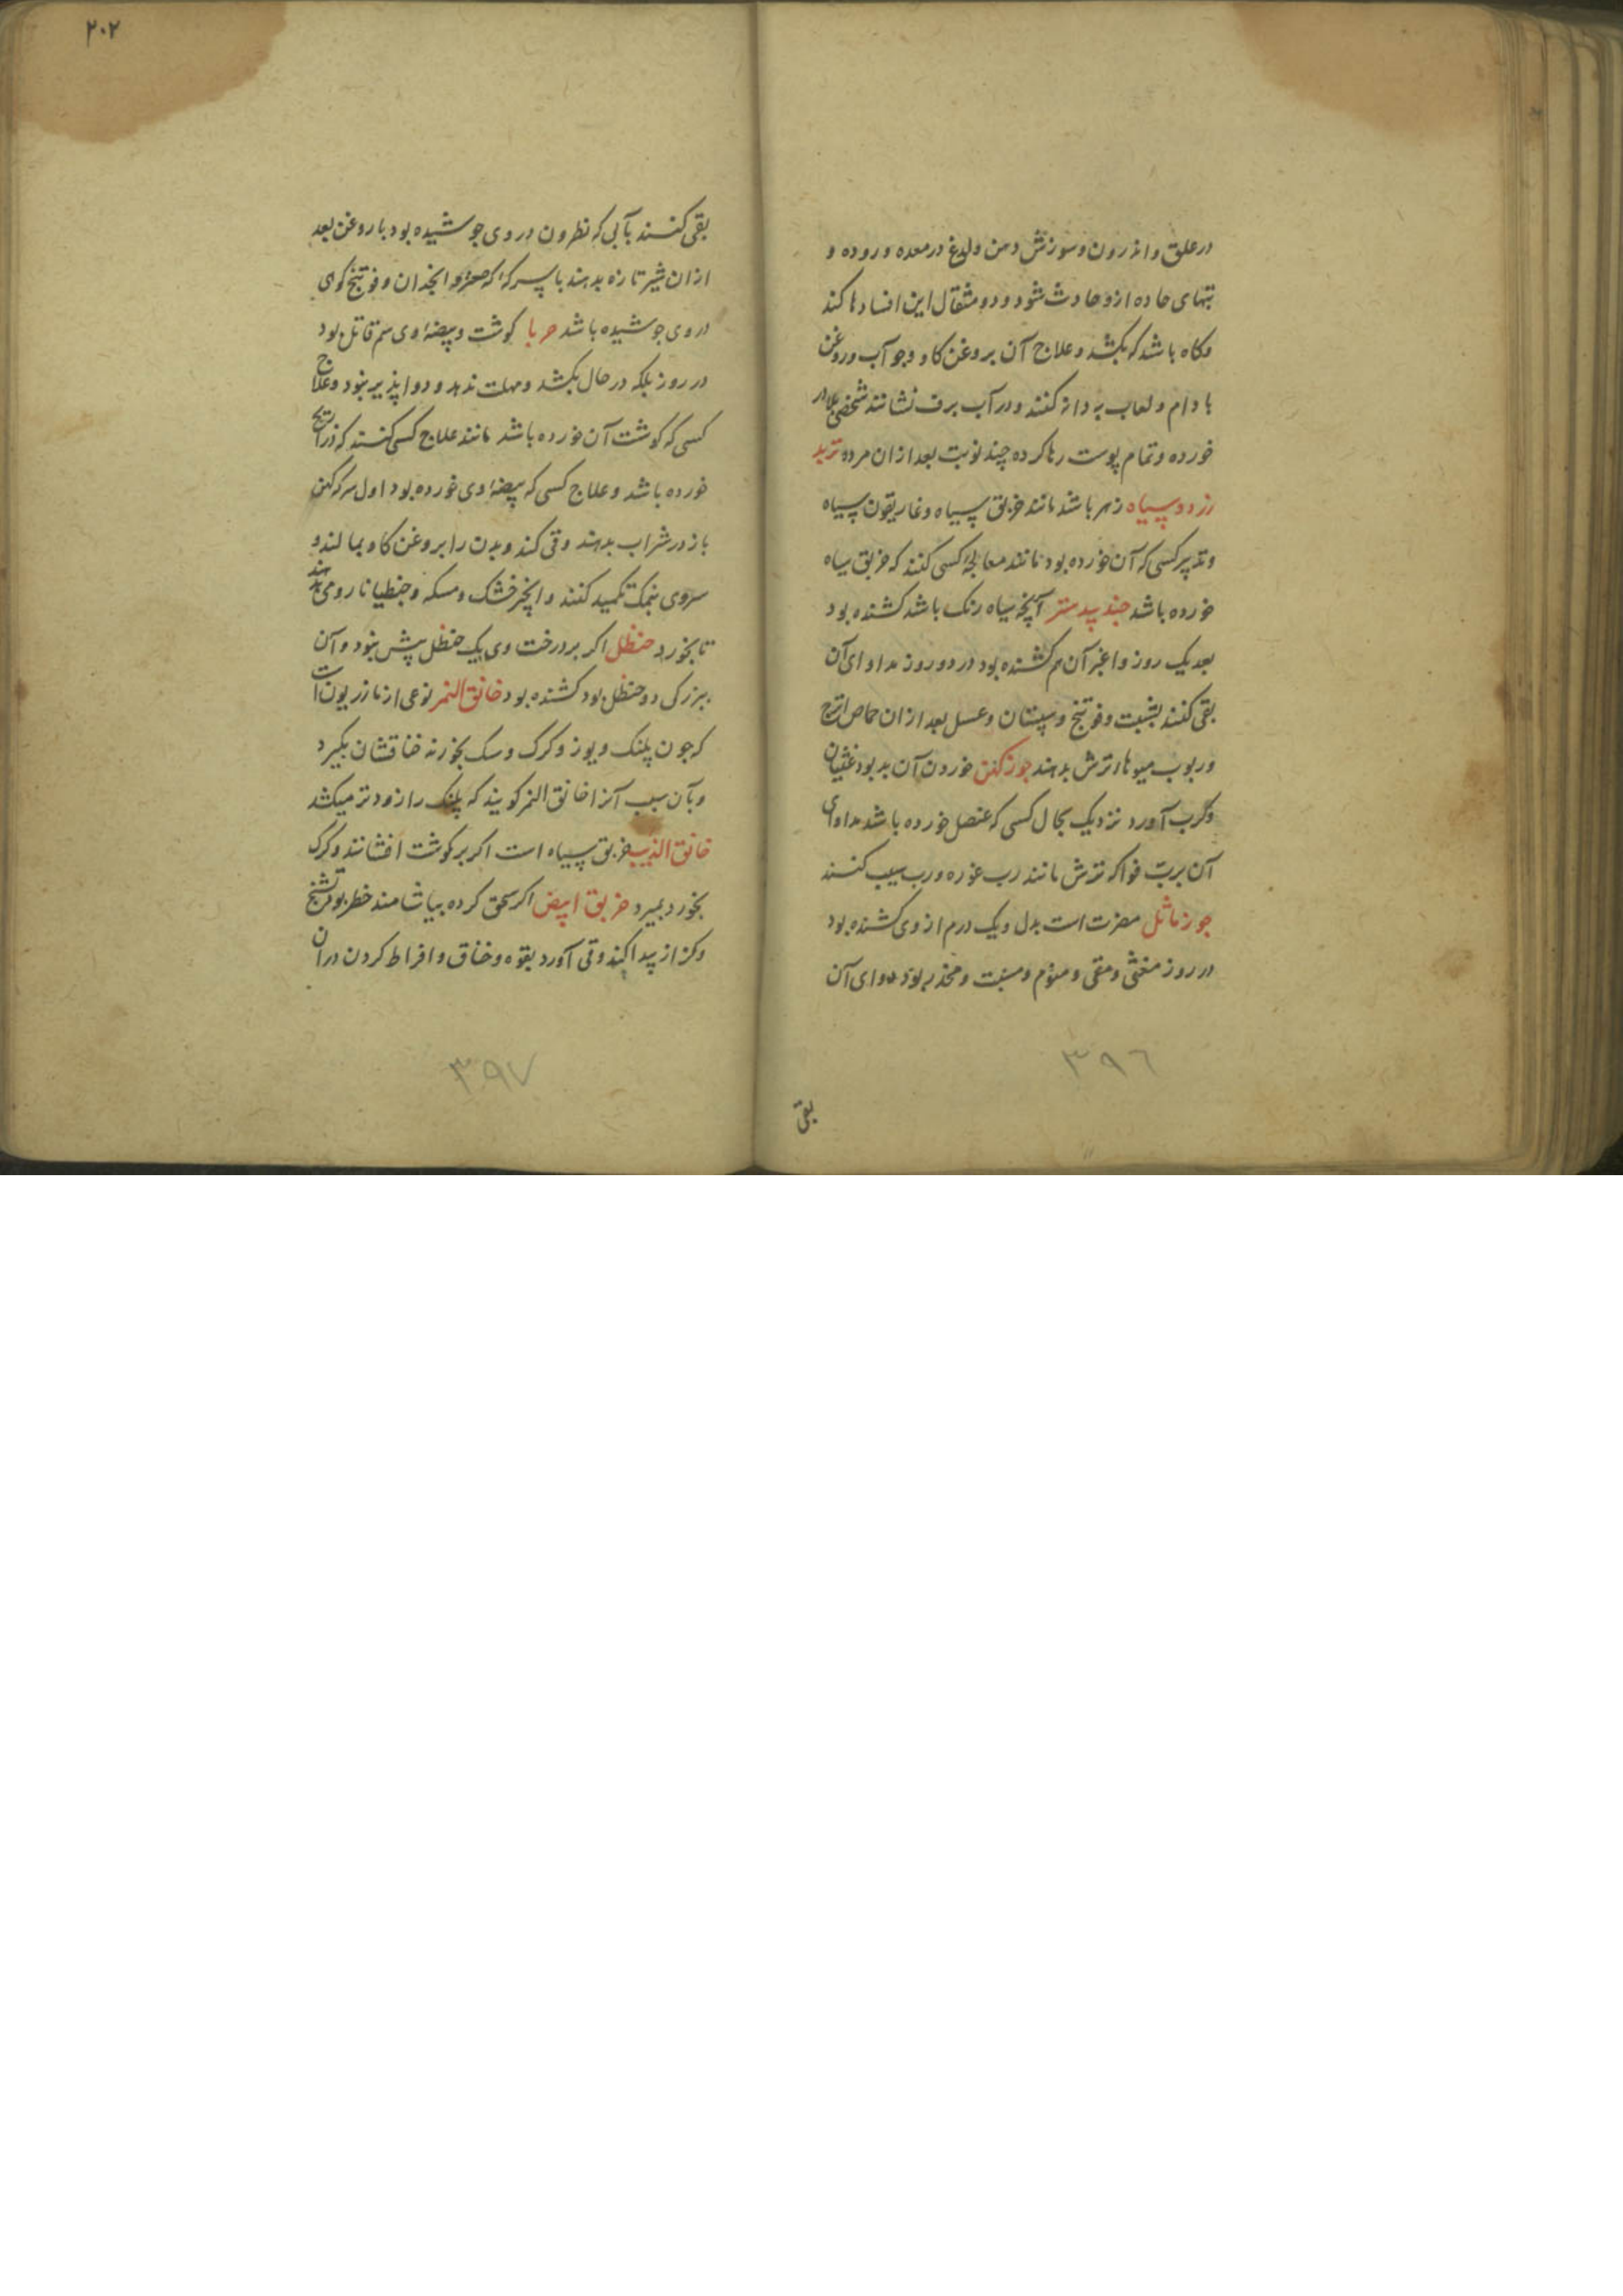 در حلق و اندرون و سوزش دهن و لدغ در معده و روده و
تبهای حاده ازو حادث شود و دو مثقال این افسادها کند
و کاه باشد که بکشد و علاج آن بروغن کاو و جو آب و روغن
بادام و لعاب به دانه کنند و در آب برف نشانند شخصی بلادر
خورده و تمام پوست رها کرده چند نوبت بعد ازان مرده تربد
زرد و سیاه زهر باشد مانند خربق سیاه و غاریقون سیاه
و تدبیر کسی که آن خورده بود مانند معالجهٔ کسی کنند که خربق سیاه
خورده باشد جند بیدستر آنچه سیاه رنک باشد کشنده بود
بعد یک روز و اغبر آن هم کشنده بود در دو روز مداوای آن
بقی کنند بشبت و فوتنج و سپستان و عسل بعد ازان حماض اترج
و ربوب میوهاء ترش بدهند جوز کهن خوردن آن بد بود غثیان
و کرب آورد نزدیک بحال کسی که عنصل خورده باشد مداوای
آن برب فواکه ترش مانند رب غوره و رب سیب کنند
جوز ماثل مضرت است بدل و یک درم از وی کشنده بود
در روز مغثی و مقی و منوم و مسبت و مخدر بود دوای آن
۳۹۶
بقی
۲۰۲
بقی کنند بآبی که نطرون در وی جوشیده بود با روغن بعد
ازان شیر تازه بدهند با سرکهٔ که صعتر و انجدان و فوتنج کوهی
در وی جوشیده باشد حربا کوشت و بیضهٔ وی سم قاتل بود
در روز بلکه در حال بکشد و مهلت ندهد و دوا پذیر نبود و علاج
کسی که کوشت آن خورده باشد مانند علاج کسی کنند که ذراریح
خورده باشد و علاج کسی که بیضهٔ وی خورده بود اول سرکین
باز در شراب بدهند و قی کند و بدن را بروغن کاو بمالند و
سروی بنمک تکمید کنند و انجیر خشک و مسکه و جنطیانا رومی بدهند
تا بخورد حنظل اکر بر درخت وی یک حنظل بیش نبود و آن
ببزرکی دو حنظل بود کشنده بود خانق النمر نوعی از مازریون است
که جون پلنک و یوز و کرک و سک بخورند خناقشان بکیرد
و بآن سبب آنرا خانق النمر کویند که پلنک را زودتر میکشد
خانق الذیب خربق سیاه است اکر بر کوشت افشانند و کرک
بخورد بمیرد خربق ابیض اکر سحق کرده بیاشامند خطر بود و تشنج
و کزاز پیدا کند و قی آورد بقوه و خناق و افراط کردن در آن
۳۹۷